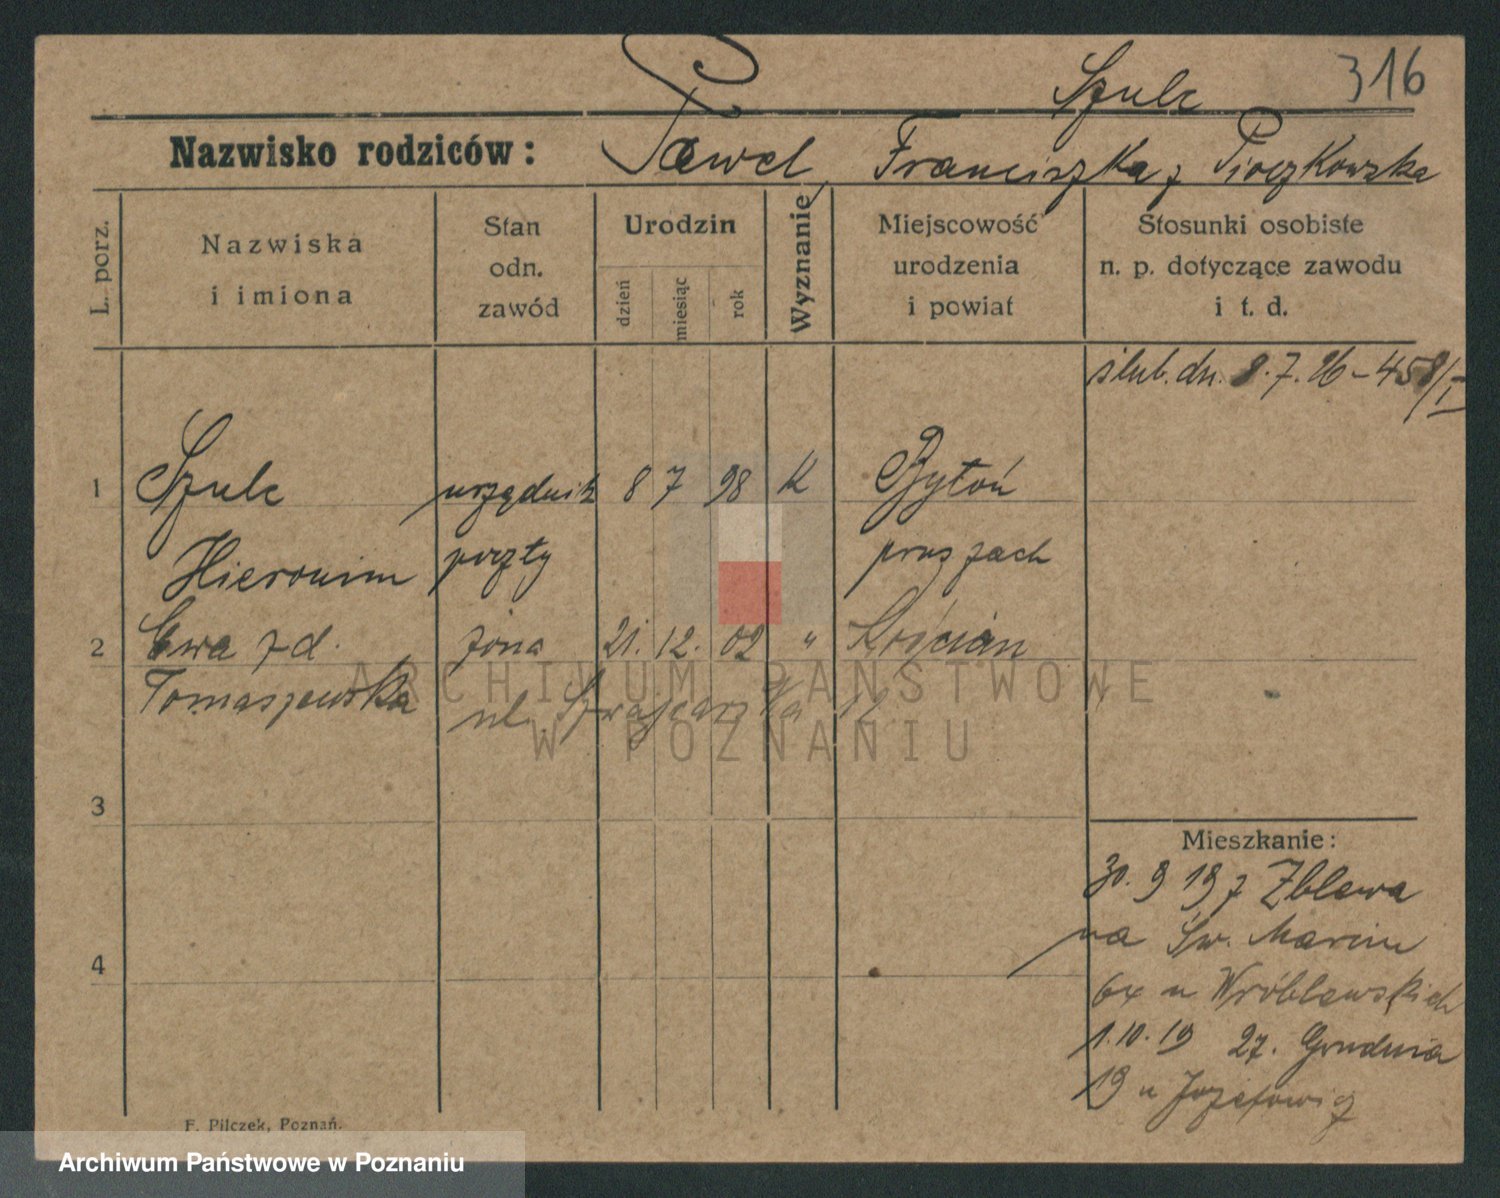 Szulc 316
Nazwisko rodziców: Paweł, Franciszka z Pioczkowska
L. porz.
Nazwiska
i imiona
Stan
odn.
zawód
Urodzin
dzień
miesiąc
rok
Wyznanie
Miejscowość
urodzenia
i powiat
Stosunki osobiste
n. p. dotyczące zawodu
i t. d.
ślub. dn. 8.7.26 - 458/I
1 Szulc urzędnik 8 7 98 K Bytoń
Hieronim poczty
2 Ewa z d. żona 21. 12. 02 " Kościan
Tomaszewska
ul. Szwajcarska
3
4
Mieszkanie:
30. 9 19 z Zblewa
na Św. Marcin
u Wróblewskich
1.10.19 27. Grudnia
19 u Józefowicz
F. Pilczek, Poznań.
ARCHIWUM PAŃSTWOWE
W POZNANIU
Archiwum Państwowe w Poznaniu